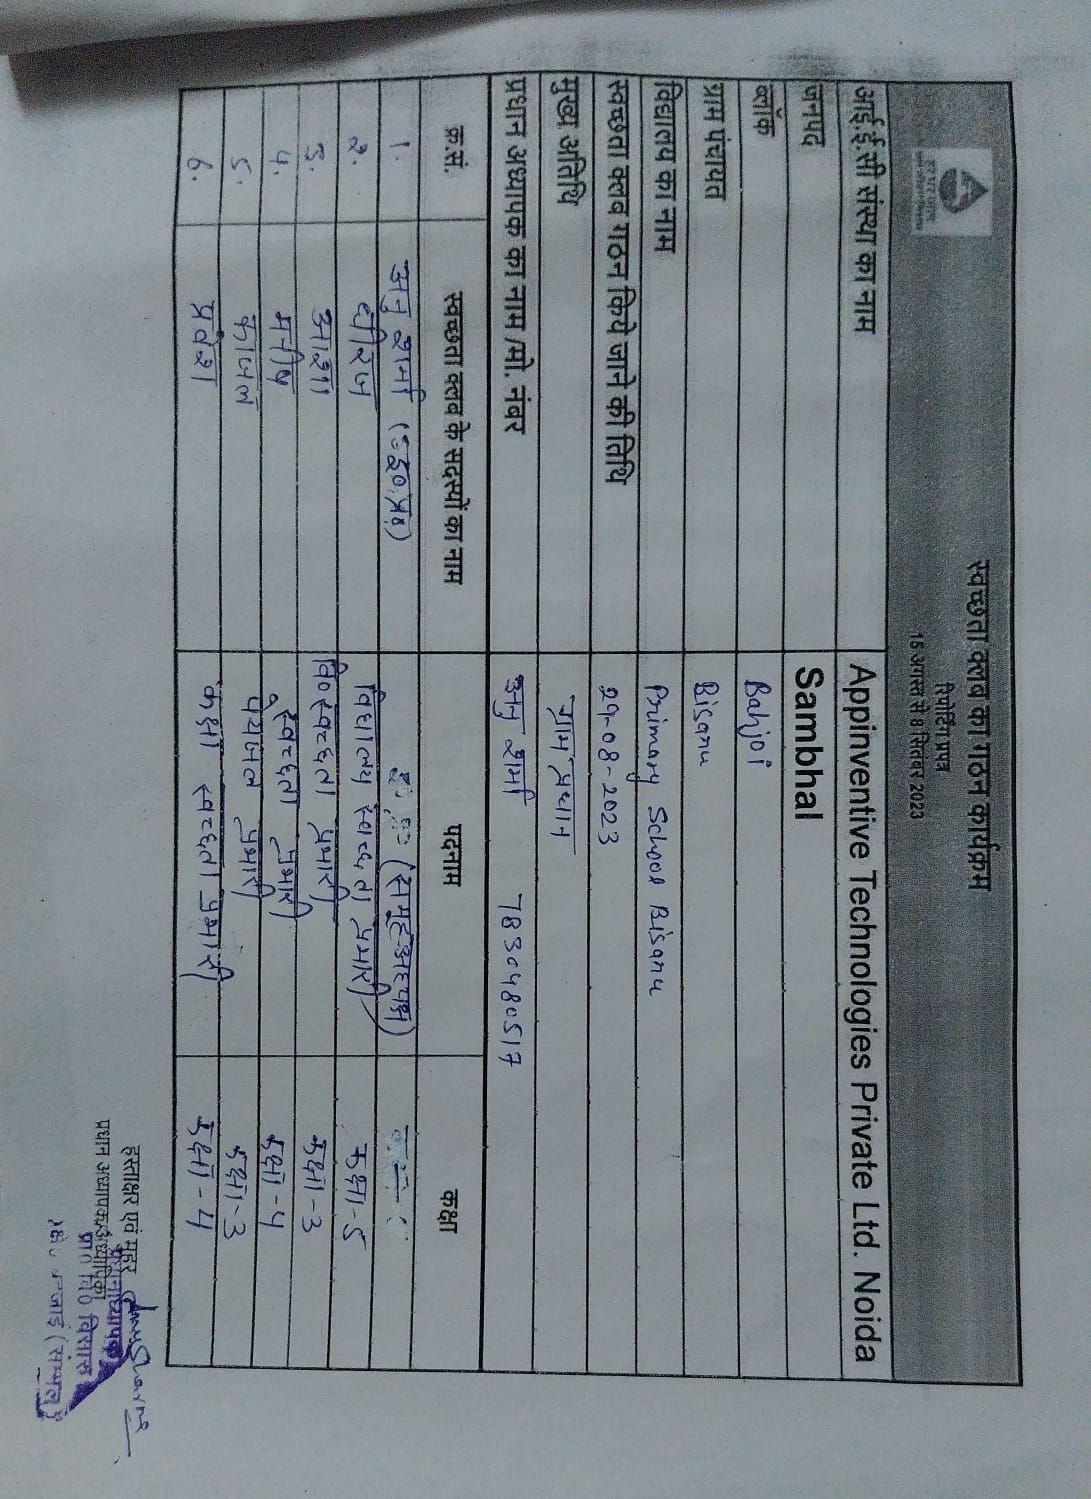 स्वच्छता क्लब का गठन कार्यक्रम
रिपोर्टिंग प्रपत्र
15 अगस्त से 8 सितंबर 2023
आई.ई.सी संस्था का नाम Appinventive Technologies Private Ltd. Noida
जनपद Sambhal
ब्लॉक Bahjoi
ग्राम पंचायत Bisanu
विद्यालय का नाम Primary School Bisanu
स्वच्छता क्लब गठन किये जाने की तिथि 29-08-2023
मुख्य अतिथि ग्राम प्रधान
प्रधान अध्यापक का नाम /मो. नंबर अनु शर्मा 7830480517
क्र.सं. स्वच्छता क्लब के सदस्यों का नाम पदनाम कक्षा
1. अनु शर्मा (समूह अध्यक्ष)
२. धीरज विद्यालय स्वच्छता प्रभारी कक्षा-5
3. आशा वि० स्वच्छता प्रभारी कक्षा-3
4. मनीष स्वच्छता प्रभारी कक्षा-4
5. काजल पेयजल प्रभारी कक्षा-3
6. प्रवेश कक्षा स्वच्छता प्रभारी कक्षा-4
हस्ताक्षर एवं मुहर Anu Sharma
प्रधान अध्यापक/अध्यापिका
प्रधानाध्यापक
प्रा० वि०
(सम्भल)